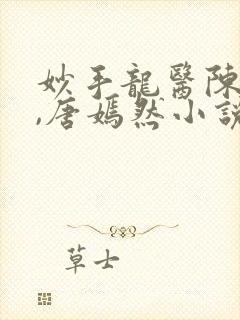 妙手龍醫陳
,唐嫣然小說
草士